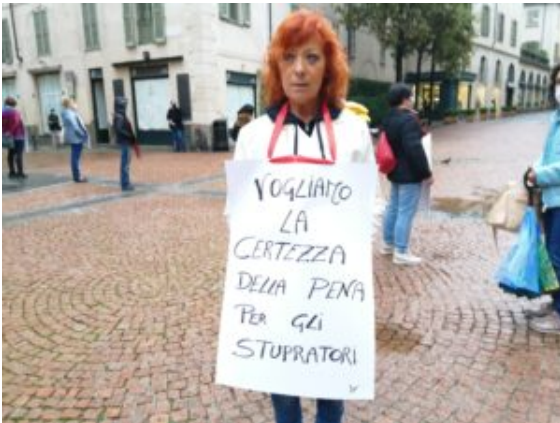 VOGLIAMO
LA
CERTEZZA
DELLA PENA
PER GLI
STUPRATORI